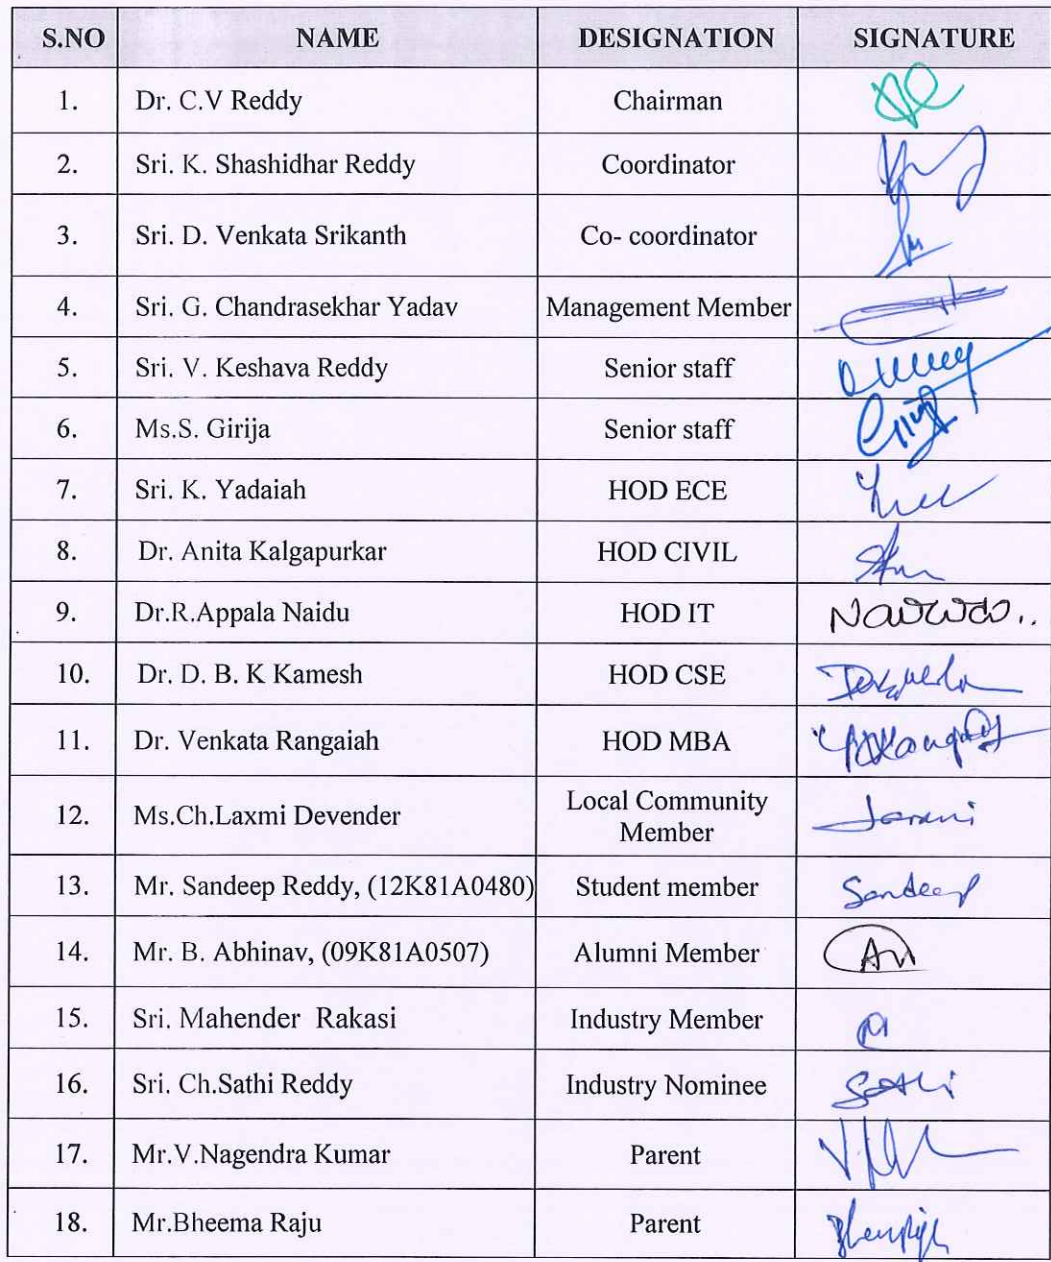 S.NO NAME DESIGNATION SIGNATURE
1. Dr. C.V Reddy Chairman
2. Sri. K. Shashidhar Reddy Coordinator
3. Sri. D. Venkata Srikanth Co- coordinator
4. Sri. G. Chandrasekhar Yadav Management Member
5. Sri. V. Keshava Reddy Senior staff
6. Ms.S. Girija Senior staff
7. Sri. K. Yadaiah HOD ECE
8. Dr. Anita Kalgapurkar HOD CIVIL
9. Dr.R.Appala Naidu HOD IT
10. Dr. D. B. K Kamesh HOD CSE
11. Dr. Venkata Rangaiah HOD MBA
12. Ms.Ch.Laxmi Devender Local Community
Member
13. Mr. Sandeep Reddy, (12K81A0480) Student member Sandeep
14. Mr. B. Abhinav, (09K81A0507) Alumni Member
15. Sri. Mahender Rakasi Industry Member
16. Sri. Ch.Sathi Reddy Industry Nominee Sathi
17. Mr.V.Nagendra Kumar Parent
18. Mr.Bheema Raju Parent